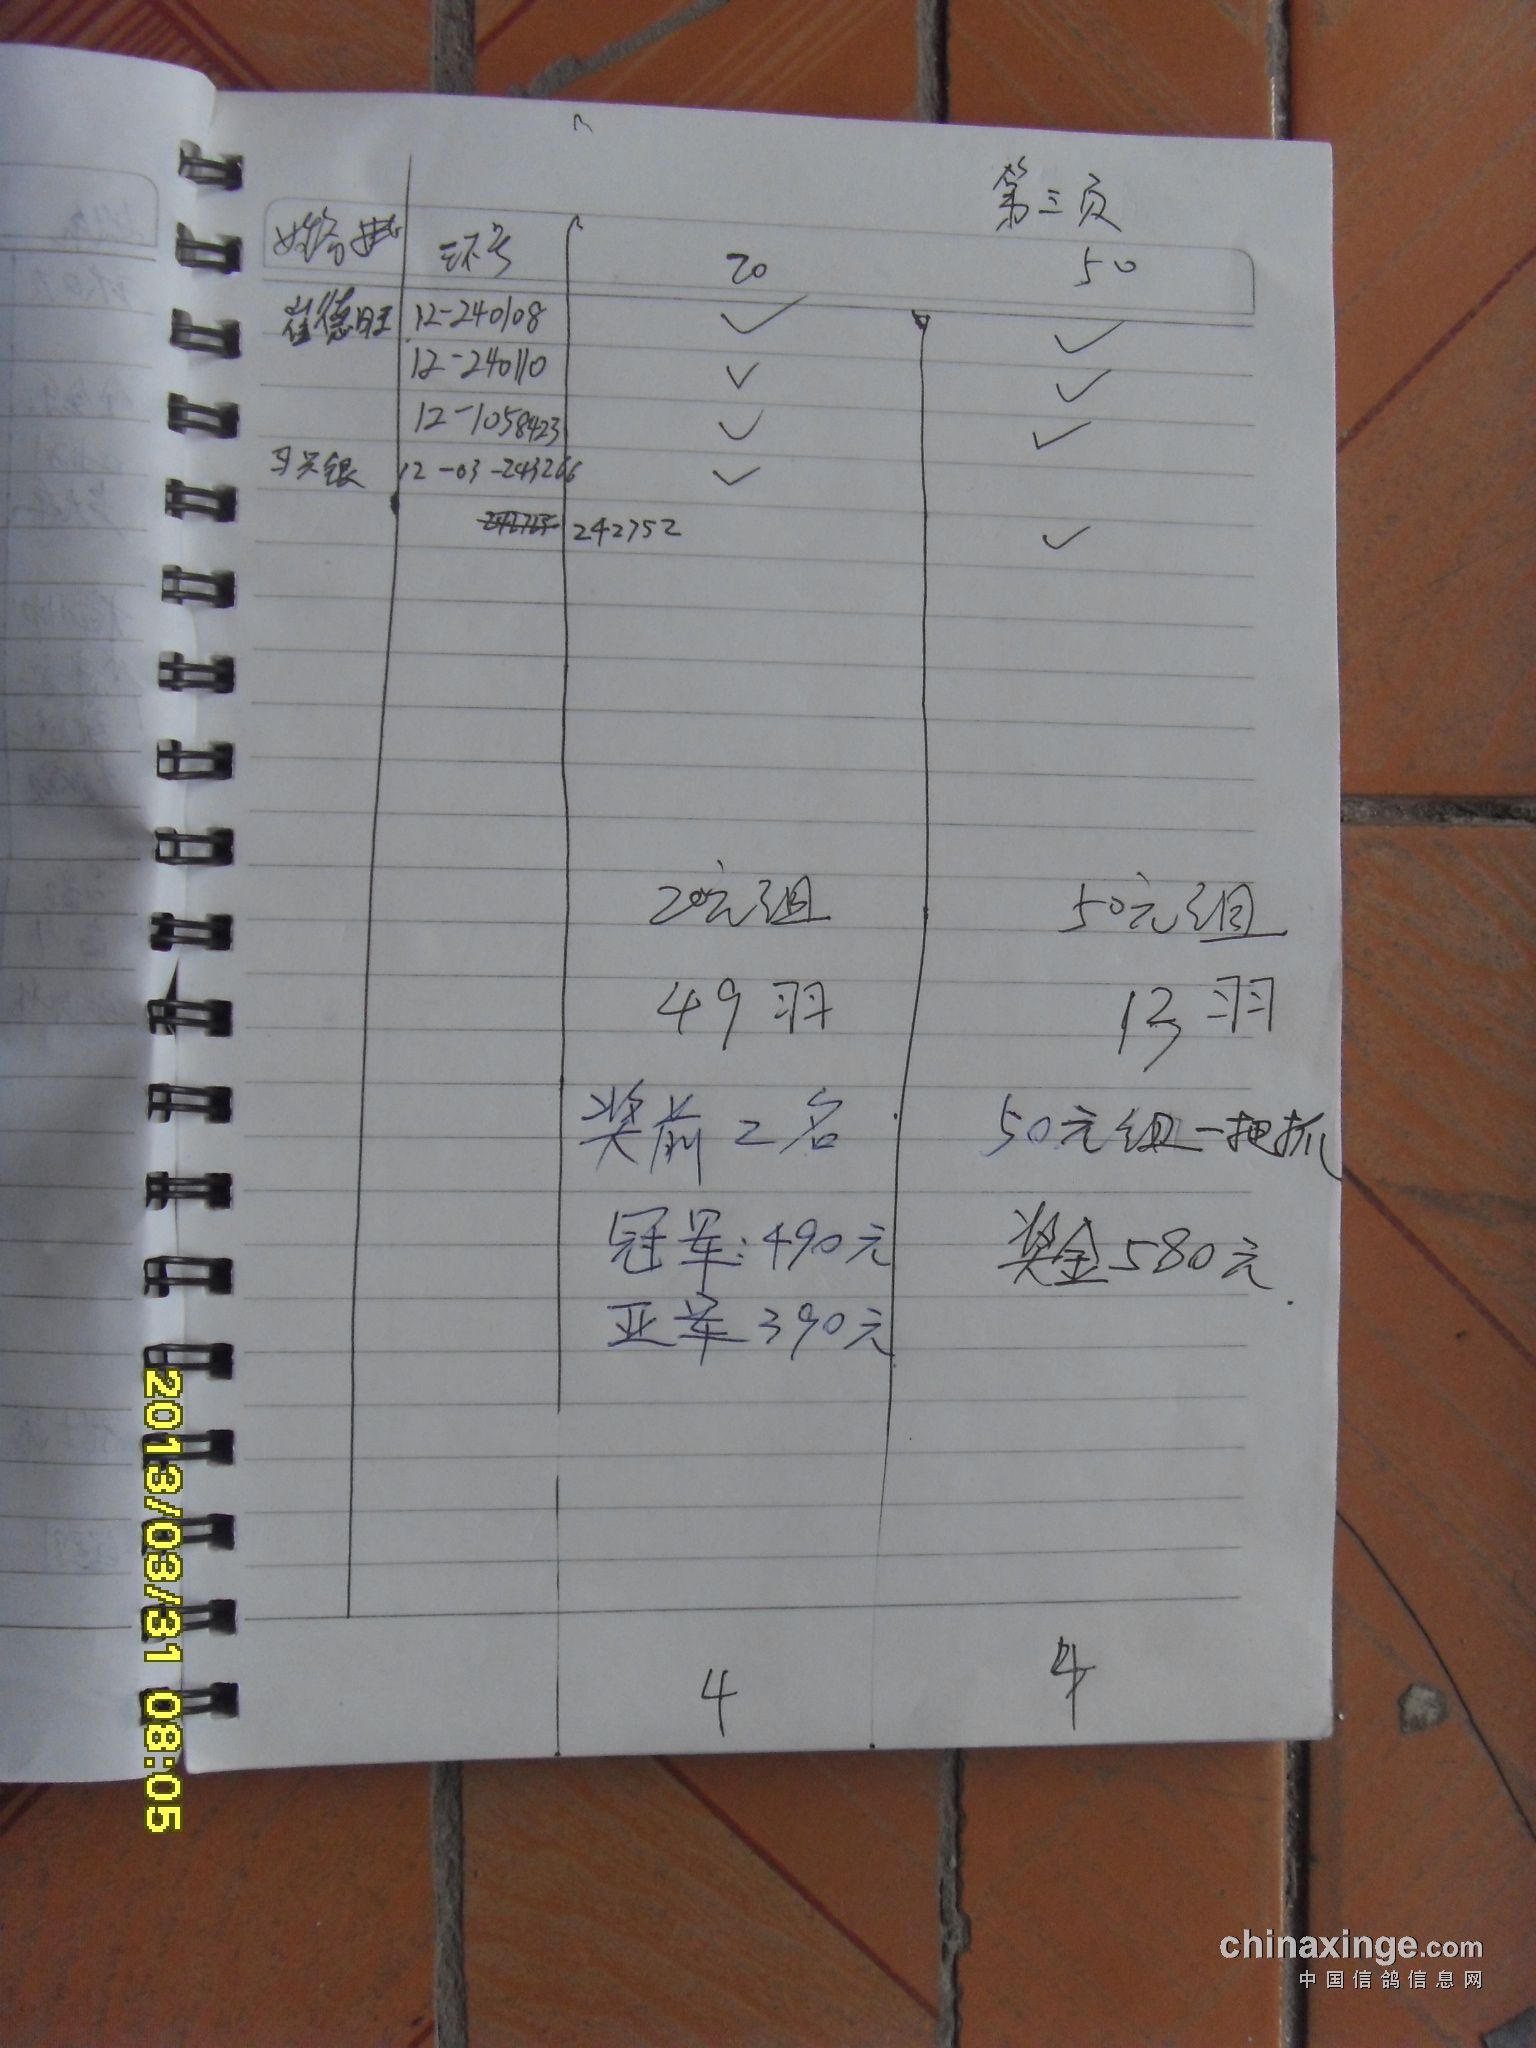 第三页
环号 20 50
崔德旺 12-240108 ✓ ✓
12-240110 ✓ ✓
12-1058423 ✓ ✓
马兴银 12-03-243266 ✓
242752 ✓
20元组 50元组
49羽 13羽
奖前2名 50元组一把抓
冠军:490元 奖金580元
亚军390元
4 4
2013/03/31 08:05
chinaxinge.com
中国信鸽信息网